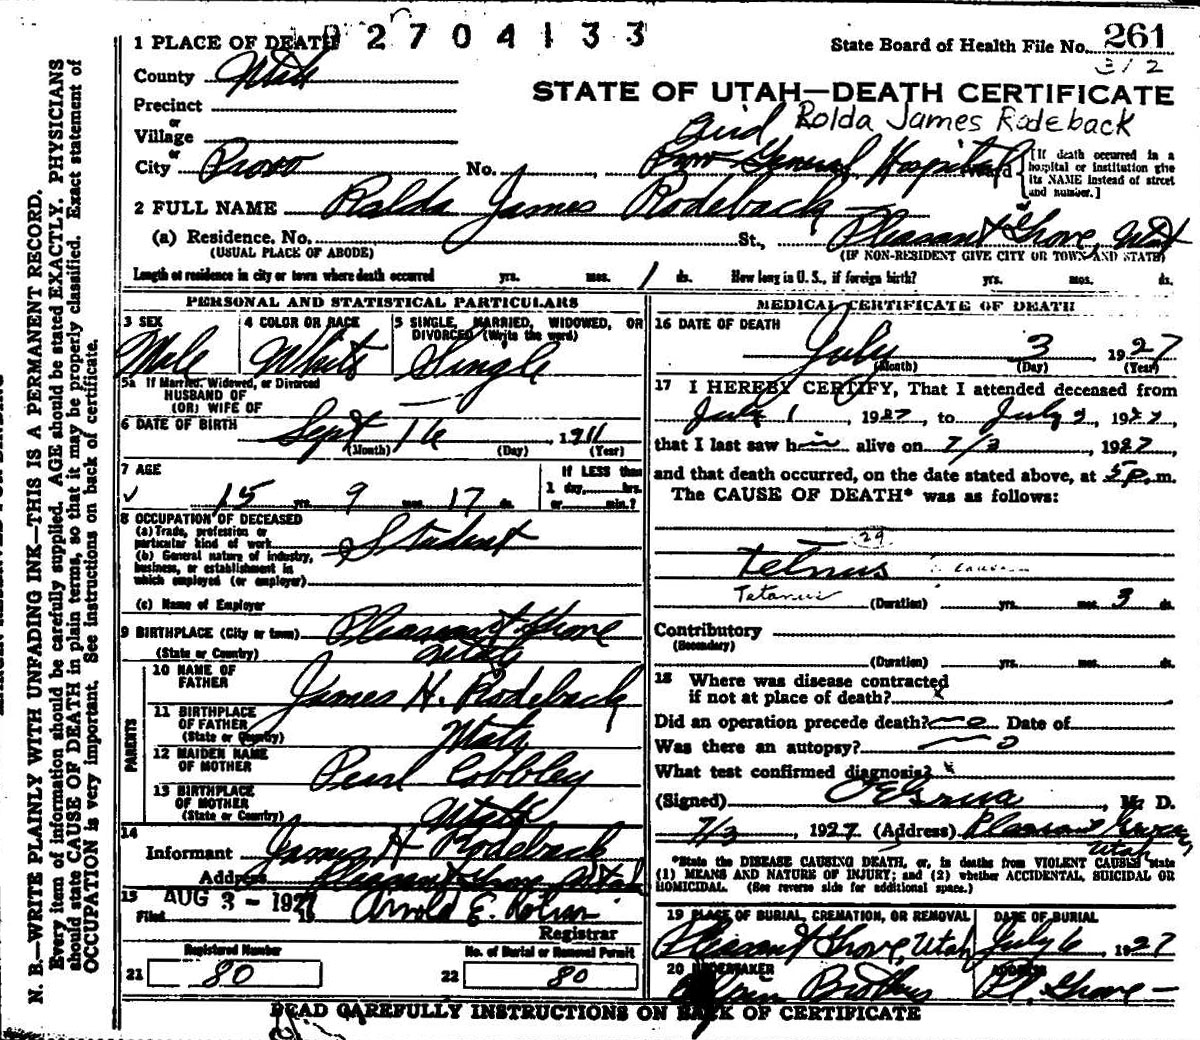 2704133
State Board of Health File No. 261
312
STATE OF UTAH—DEATH CERTIFICATE
1 PLACE OF DEATH
County Utah
Precinct
or
Village
or
City Provo No.
Rolda James Rodeback
Provo General Hospital
[If death occurred in a hospital or institution give its NAME instead of street and number.]
2 FULL NAME Ralda James Rodeback
(a) Residence. No. St., Pleasant Grove, Utah
(USUAL PLACE OF ABODE) (IF NON-RESIDENT GIVE CITY OR TOWN AND STATE)
Length of residence in city or town where death occurred yrs. mos. 1 ds. How long in U. S., if foreign birth? yrs. mos. ds.
PERSONAL AND STATISTICAL PARTICULARS
3 SEX 4 COLOR OR RACE 5 SINGLE, MARRIED, WIDOWED, OR DIVORCED (Write the word)
Male White Single
5a If Married, Widowed, or Divorced
HUSBAND OF
(OR) WIFE OF
6 DATE OF BIRTH Sept 16, 1911
(Month) (Day) (Year)
7 AGE If LESS than
15 yrs. 9 mos. 17 ds. 1 day, hrs.
or min.?
8 OCCUPATION OF DECEASED
(a) Trade, profession or
particular kind of work Student
(b) General nature of industry,
business, or establishment in
which employed (or employer)
(c) Name of Employer
9 BIRTHPLACE (City or town) Pleasant Grove
(State or Country) Utah
PARENTS
10 NAME OF
FATHER James H. Rodeback
11 BIRTHPLACE
OF FATHER
(State or Country) Utah
12 MAIDEN NAME
OF MOTHER Pearl Cobbley
13 BIRTHPLACE
OF MOTHER
(State or Country) Utah
14
Informant James H Rodeback
Address Pleasant Grove Utah
15 Filed AUG 3 - 1927 Arnold E.
Registrar
Registered Number No. of Burial or Removal Permit
21 80 22 80
MEDICAL CERTIFICATE OF DEATH
16 DATE OF DEATH
July 3, 1927
(Month) (Day) (Year)
17 I HEREBY CERTIFY, That I attended deceased from
July 1 1927 to July 3, 1927
that I last saw him alive on 7/3 1927
and that death occurred, on the date stated above, at 5 p.m.
The CAUSE OF DEATH* was as follows:
29
Tetnus
Tetanus (Duration) yrs. mos. 3 ds.
Contributory
(Secondary)
(Duration) yrs. mos. ds.
18 Where was disease contracted
if not at place of death? x
Did an operation precede death? no Date of
Was there an autopsy? no
What test confirmed diagnosis? x
(Signed) , M. D.
7/3, 1927 (Address) Pleasant Grove
Utah
*State the DISEASE CAUSING DEATH, or, in deaths from VIOLENT CAUSES state
(1) MEANS AND NATURE OF INJURY; and (2) whether ACCIDENTAL, SUICIDAL OR
HOMICIDAL. (See reverse side for additional space.)
19 PLACE OF BURIAL, CREMATION, OR REMOVAL DATE OF BURIAL
Pleasant Grove, Utah July 6, 1927
20 UNDERTAKER ADDRESS
Brothers Pl. Grove
READ CAREFULLY INSTRUCTIONS ON BACK OF CERTIFICATE
N. B.—WRITE PLAINLY WITH UNFADING INK—THIS IS A PERMANENT RECORD.
Every item of information should be carefully supplied. AGE should be stated EXACTLY. PHYSICIANS
should state CAUSE OF DEATH in plain terms, so that it may be properly classified. Exact statement of
OCCUPATION is very important. See instructions on back of certificate.